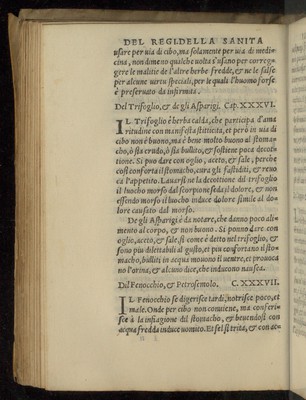 DEL REGI. DELLA SANITA
usare per uia di cibo, ma solamente per uia di medi-
cina, nondimeno qualche uolta s'usano per correg-
gere le malitie de l'altre herbe fredde, & ne le salse
per alcune uertu speciali, per le quali l'huomo forse
è preseruato da infirmita.
Del Trifoglio, & de gli Asparigi. Cap. XXXVI.
IL Trifoglio è herba calda, che participa d'ama
ritudine con manifesta stitticita, et però in uia di
cibo non è buono, ma è bene molto buono al stoma-
cho, ò sia crudo, ò sia bullito, & sostiene poca decot-
tione. Si puo dare con oglio, aceto, & sale, perche
cosi conforta il stomacho, cura gli fastidii, & reuo
ca l'appetito. Lauarsi ne la decottione dil trifoglio
il luocho morso dal scorpione seda il dolore, & non
essendo morso il luocho induce dolore simile al do-
lore causato dal morso.
De gli Asparigi è da notare, che danno poco ali-
mento al corpo, & non buono. Si ponno dare con
oglio, aceto, & sale, si come è detto nel trifoglio, &
sono piu dilettabili al gusto, et piu confortano il sto-
macho, bulliti in acqua mouono il uentre, et prouoca
no l'orina, & alcuno dice, che inducono nausea.
Dil Fenocchio, & Petrosemolo. C. XXXVII.
IL Fenocchio se digerisce tardi, notrisce poco, et
male. Onde per cibo non conuiene, ma conferi-
sce à la infiagione dil stomacho, & beuendosi con
acqua fredda induce uomito. Et sel si trita, & con ac-